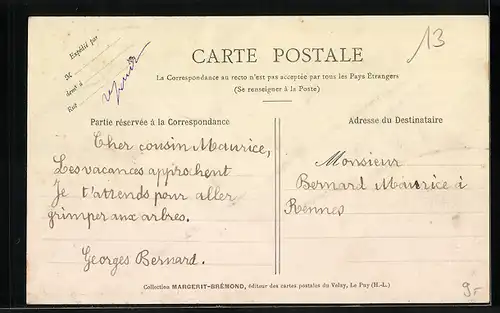 13
Expédié par
M
demt à
Rue
CARTE POSTALE
La Correspondance au recto n'est pas acceptée par tous les Pays Étrangers
(Se renseigner à la Poste)
Partie réservée à la Correspondance
Cher cousin Maurice,
Les vacances approchent
Je t'attends pour aller
grimper aux arbres.
Georges Bernard.
Adresse du Destinataire
Monsieur
Bernard Maurice à
Rennes
Collection MARGERIT-BRÉMOND, éditeur des cartes postales du Velay, Le Puy (H.-L.)
9F